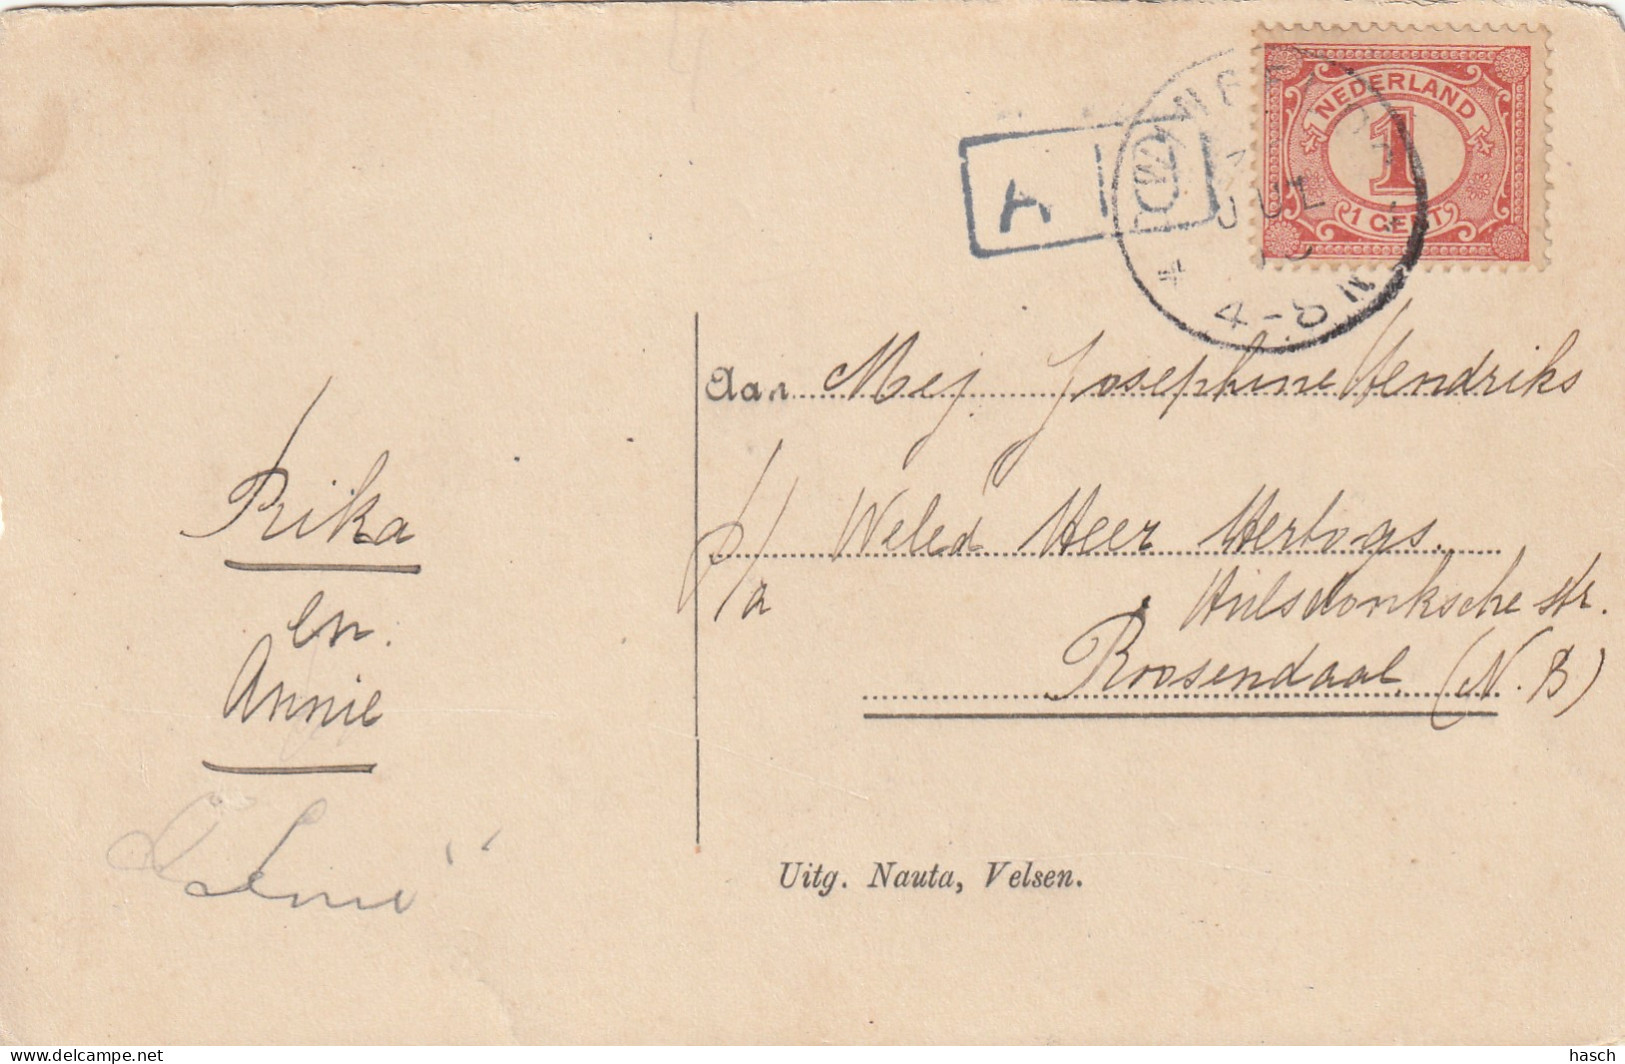 NEDERLAND
1
1 CENT
JUL
4-8 N
A
Aan Mej. Josephine Hendriks
p/a Weled Heer Hertogs.
Hulsdonksche str.
Roosendaal (N.B)
Rika
en.
Annie
Uitg. Nauta, Velsen.
hasch